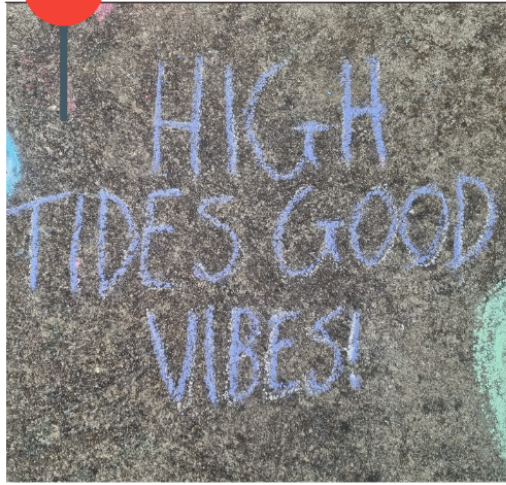 HIGH
TIDES GOOD
VIBES!